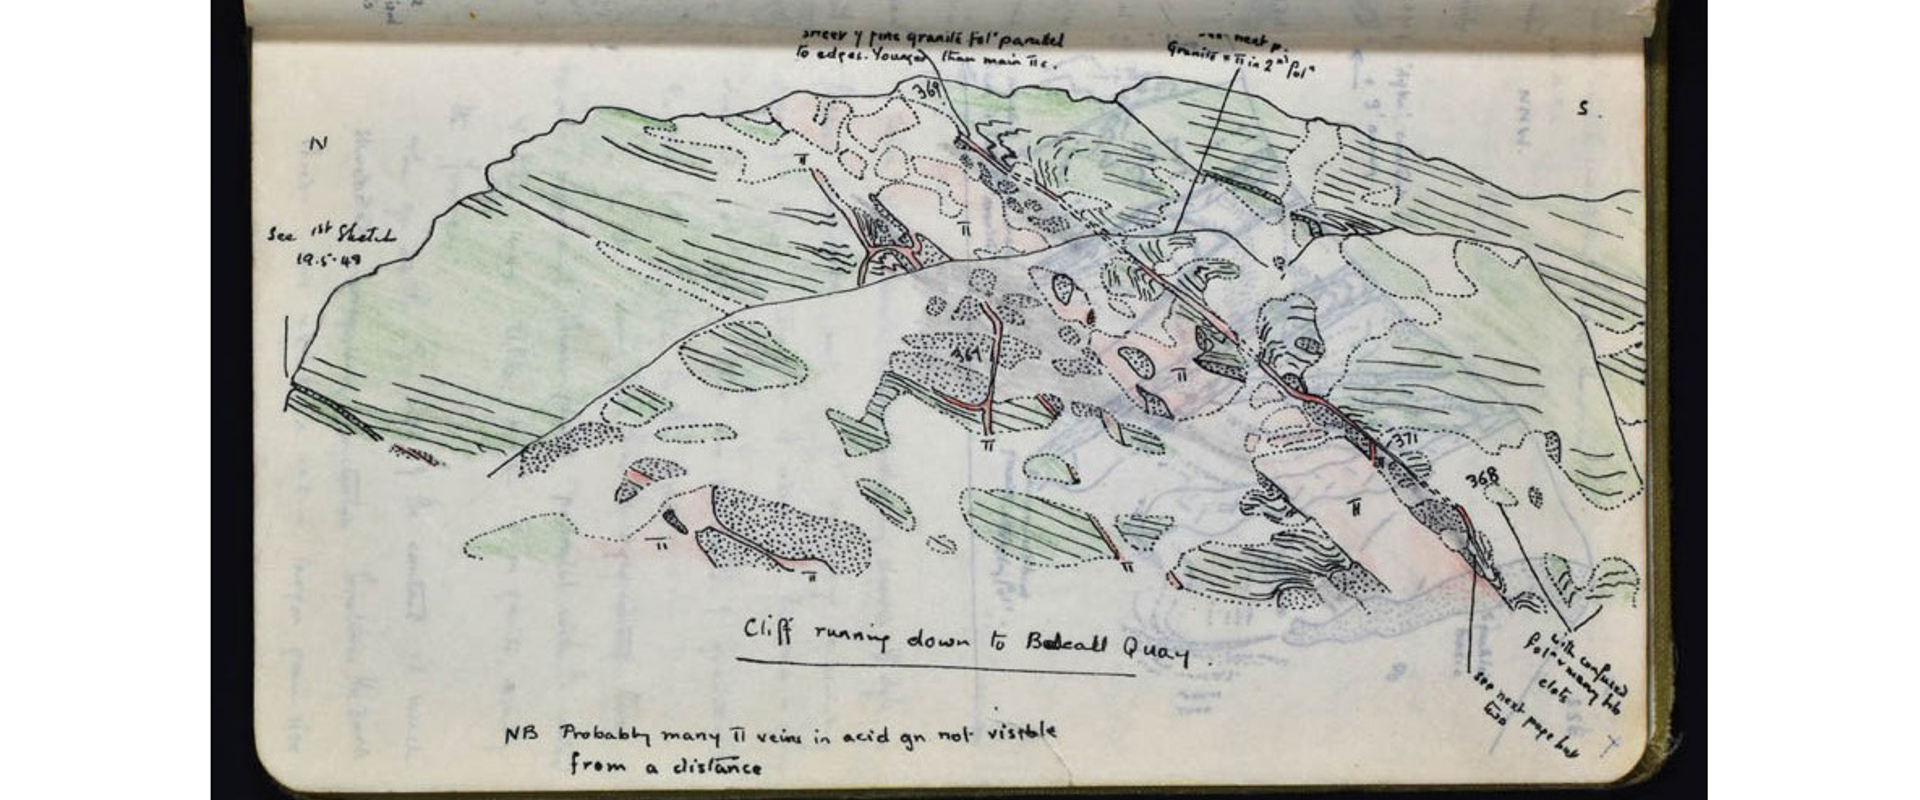 sheet of fine granite folⁿ parallel
to edges. Younger than main πs.
see next p.
Granite = π in 2ⁿᵈ folⁿ
N
S.
369
See 1st Sketch
19.5.49
π
π
367
π
π
371
368
π
π
π
π
Cliff running down to Badcall Quay.
with confused
folⁿ & many hb
clots
see next page but
two
NB Probably many π veins in acid gn not visible
from a distance